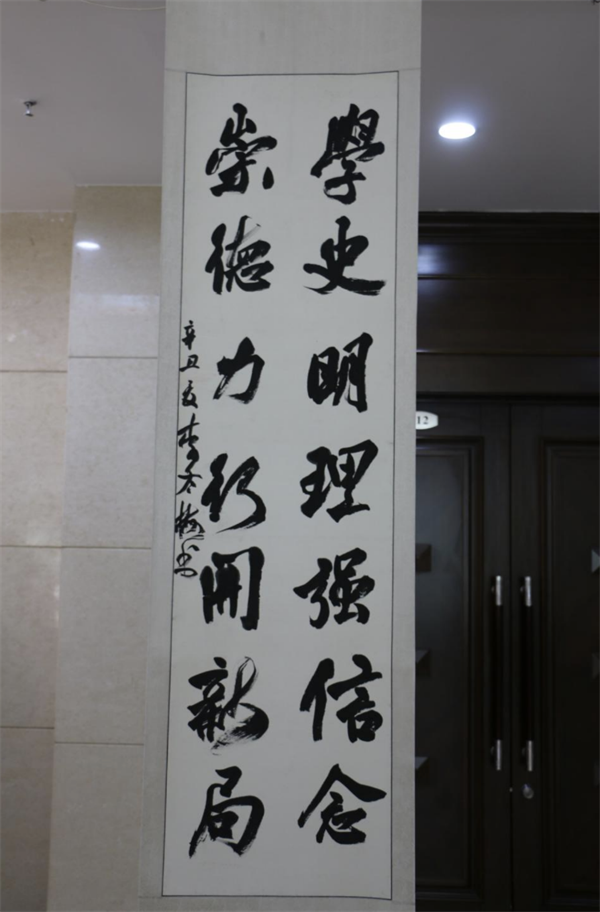 學史明理强信念
崇德力行開新局
辛丑夏李冬梅书
12